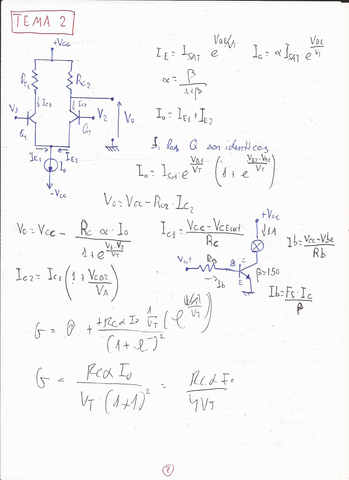 TEMA 2
+Vcc
Rc1 Rc2
Ic1 Ic2
V1 V2
Q1 Q2
V0
IE1 IE2
I0
-Vcc
IE = ISAT e^(VBE/VT) Ic = α ISAT e^(VBE/VT)
α = β/(1+β)
I0 = IE1 + IE2
Si los Q son identicos
I0 = ISAT · e^(VB1/VT) · (1 + e^((VB2-VB1)/VT))
V0 = Vcc - Rc2 · Ic2
V0 = Vcc - (Rc · α · I0)/(1 + e^((V1-V2)/VT))
Ic1 = (Vcc - VCEsat)/Rc
Ic2 = Ic1 (1 + VCE2/VA)
+Vcc
↓1A
Vout RB B C
E
→ Ib
β=150
Ib = (Vcc - Vbe)/Rb
Ib = (Fs · Ic)/β
G = 0 + (+Rc α I0 1/VT (e))/(1+e)^2
G = (Rc α I0)/(VT · (1+1)^2) = (Rc α I0)/(4VT)
2